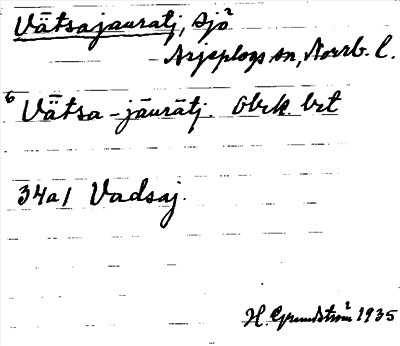 Vätsajauratj, sjö
Arjeplogs sn, Norrb. l.
6 Vätsa-jāurātj. Obek. brt
34a1 Vadsaj.
H. Grundström 1935